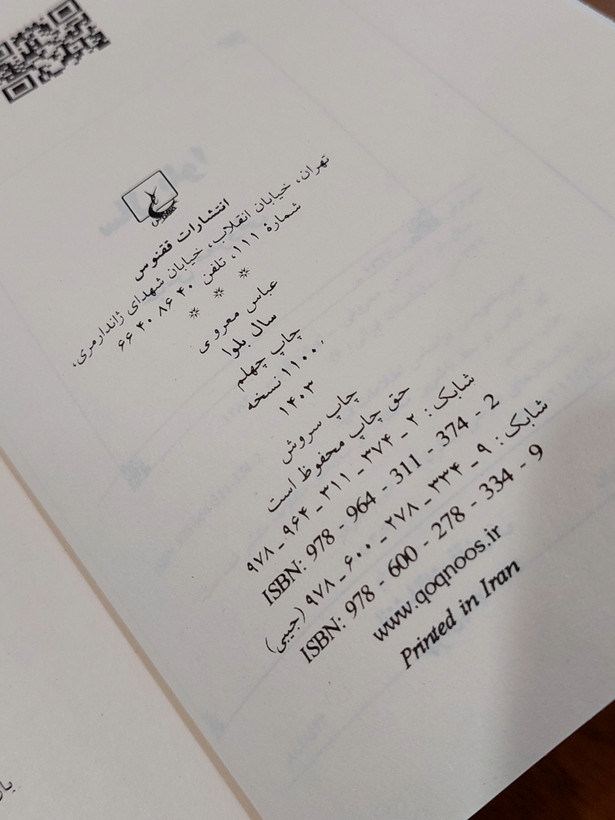 انتشارات ققنوس
تهران، خیابان انقلاب، خیابان شهدای ژاندارمری،
شمارهٔ ۱۱۱، تلفن ۴۰ ۸۶ ۴۰ ۶۶
* * *
عباس معروفی
سال بلوا
چاپ چهلم
۱۱۰۰ نسخه
۱۴۰۳
چاپ سروش
حق چاپ محفوظ است
شابک: ۲ ـ ۳۷۴ ـ ۳۱۱ ـ ۹۶۴ ـ ۹۷۸
ISBN: 978 - 964 - 311 - 374 - 2
شابک: ۹ ـ ۳۳۴ ـ ۲۷۸ ـ ۶۰۰ ـ ۹۷۸ (جیبی)
ISBN: 978 - 600 - 278 - 334 - 9
www.qoqnoos.ir
Printed in Iran